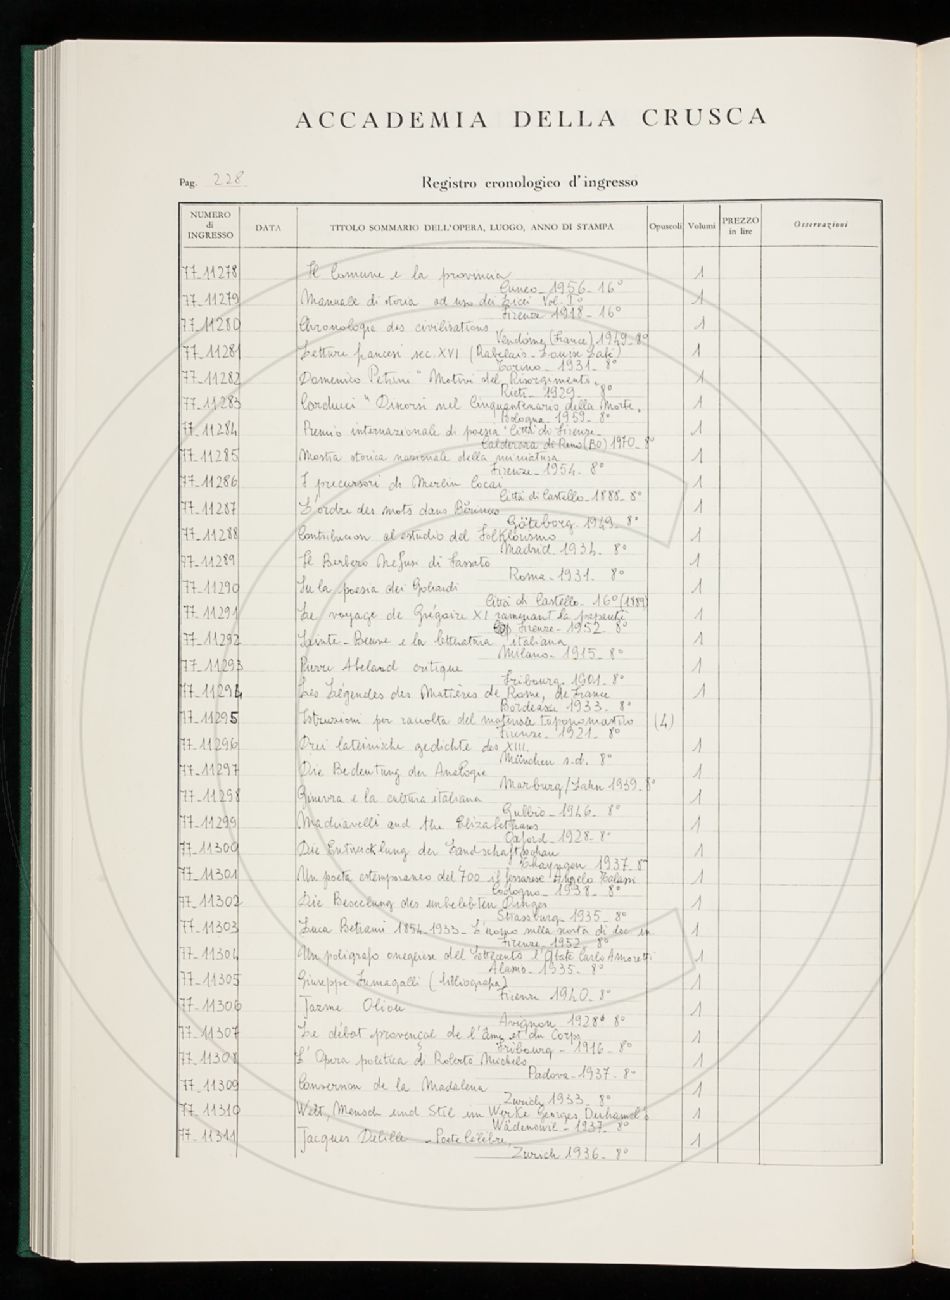 ACCADEMIA DELLA CRUSCA
Pag. 228
Registro cronologico d'ingresso
NUMERO di INGRESSO DATA TITOLO SOMMARIO DELL'OPERA, LUOGO, ANNO DI STAMPA Opuscoli Volumi PREZZO in lire Osservazioni
77-11278 Il Comune e la provincia 1
Cuneo - 1956 - 16°
77-11279 Manuale di storia ad uso dei Licei Vol. I° 1
Firenze 1918 - 16°
77-11280 Chronologie des civilisations 1
Vendôme (France) 1949 - 8°
77-11281 Letture francesi sec. XVI (Rabelais - Louise Labé) 1
Torino - 1931 - 8°
77-11282 Domenico Petrini "Motivi del Risorgimento" 1
Rieti - 1929 - 8°
77-11283 Carducci "Discorsi nel Cinquantenario della Morte" 1
Bologna - 1959 - 8°
77-11284 Premio internazionale di poesia "Città di Firenze" 1
Calderara di Reno (BO) 1970 - 8°
77-11285 Mostra storica nazionale della miniatura 1
Firenze - 1954 - 8°
77-11286 I precursori di Merlin Cocai 1
Città di Castello - 1888 - 8°
77-11287 L'ordre des mots dans 1
Göteborg - 1949 - 8°
77-11288 Contribucion al estudio del Folklorismo 1
Madrid - 1934 - 8°
77-11289 Il Barbero di Fassato 1
Roma - 1931 - 8°
77-11290 Su la poesia dei Goliardi 1
Città di Castello - 16° (1889)
77-11291 Le voyage de Grégoire XI ramenant la papauté 1
Firenze - 1952 - 8°
77-11292 Sainte-Beuve e la letteratura italiana 1
Milano - 1915 - 8°
77-11293 Pierre Abelard critique 1
Fribourg - 1901 - 8°
77-11294 Les Légendes des Matières de Rome, de France 1
Bordeaux 1933 - 8°
77-11295 Istruzioni per raccolta del materiale toponomastico (4)
Firenze - 1921 - 8°
77-11296 Drei lateinische gedichte des XIII. 1
München s.d. 8°
77-11297 Die Bedeutung der Analogie 1
Marburg/Lahn 1939 - 8°
77-11298 Ginevra e la cultura italiana 1
Gubbio - 1946 - 8°
77-11299 Machiavelli and the Elizabethans 1
Oxford - 1928 - 8°
77-11300 Die Entwicklung der Landschaft 1
1937 - 8°
77-11301 Un poeta estemporaneo del 700 il ferrarese Angelo Talassi 1
Codogno - 1938 - 8°
77-11302 Die Beseelung des unbelebten Dinges 1
Strassburg - 1935 - 8°
77-11303 Luca Beltrami 1854-1933 - L'uomo sulla scorta di 1
Firenze - 1952 - 8°
77-11304 Un poligrafo onegliese del Settecento l'Abate Carlo Amoretti 1
1935 - 8°
77-11305 Giuseppe Fumagalli (bibliografia) 1
Firenze 1940 - 8°
77-11306 Jazme Oliou 1
Avignon 1928 8°
77-11307 Le débat provençal de l'âme et du Corps 1
Fribourg - 1916 - 8°
77-11308 L'Opera politica di Roberto Michels 1
Padova - 1937 - 8°
77-11309 Conversion de la Madalena 1
Zurich 1933 - 8°
77-11310 Welt, Mensch und Stil im Werke Georges Duhamel's 1
Wädenswil - 1937 - 8°
77-11311 Jacques Delille - Poète Célèbre 1
Zurich 1936 - 8°